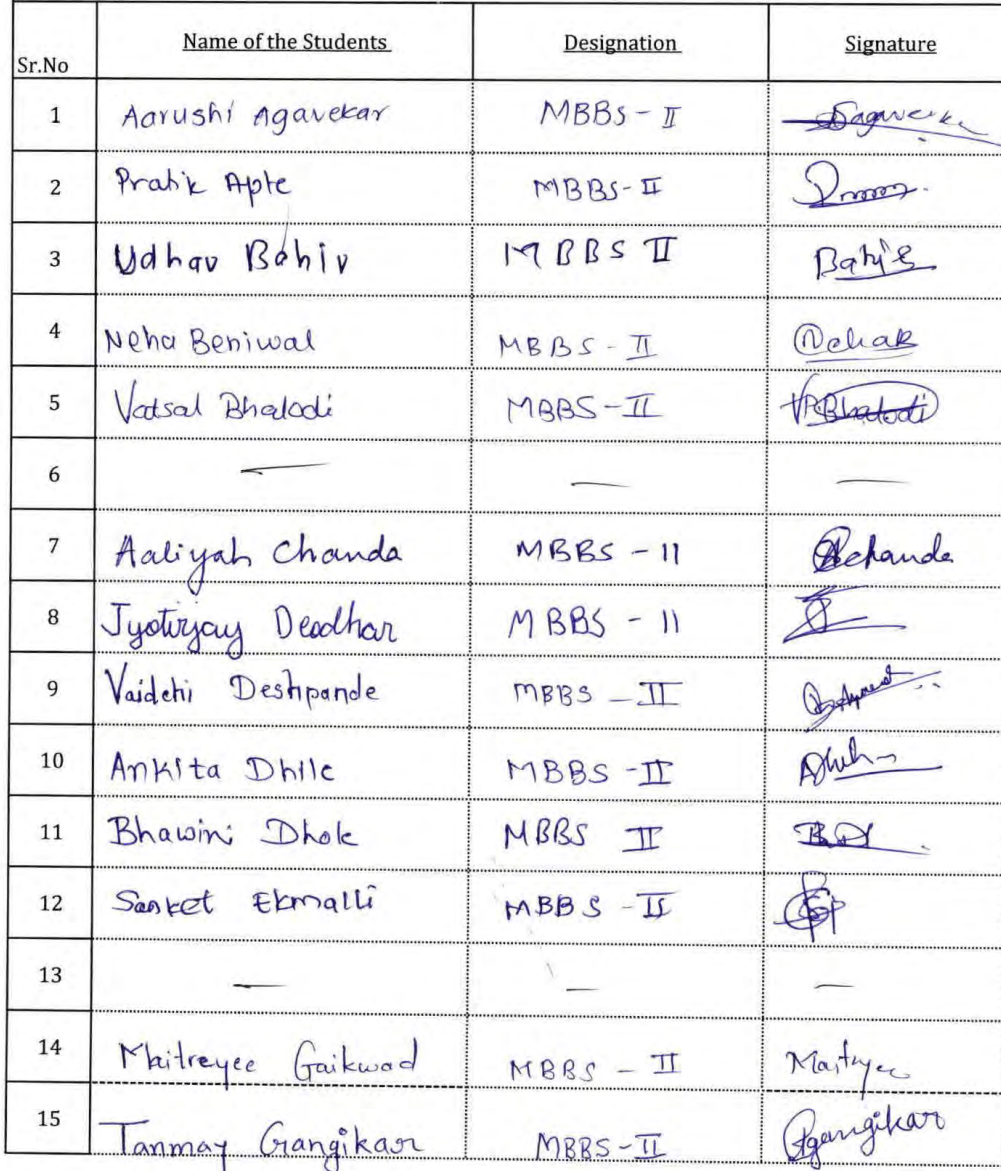 Sr.No Name of the Students Designation Signature
1 Aarushi Agavekar MBBS - II
2 Pratik Apte MBBS - II
3 Udhav Bahiv MBBS II
4 Neha Beniwal MBBS - II Nehak
5 Vatsal Bhalodi MBBS - II VPBhalodi
6 — — —
7 Aaliyah Chanda MBBS - 11 Achanda
8 Jyotirjay Deodhar MBBS - 11
9 Vaidehi Deshpande MBBS - II
10 Ankita Dhile MBBS - II
11 Bhawini Dhole MBBS II
12 Sanket Ekmalli MBBS - II
13 — — —
14 Maitreyee Gaikwad MBBS - II Maitreyee
15 Tanmay Gangikar MBBS - II Tgangikar